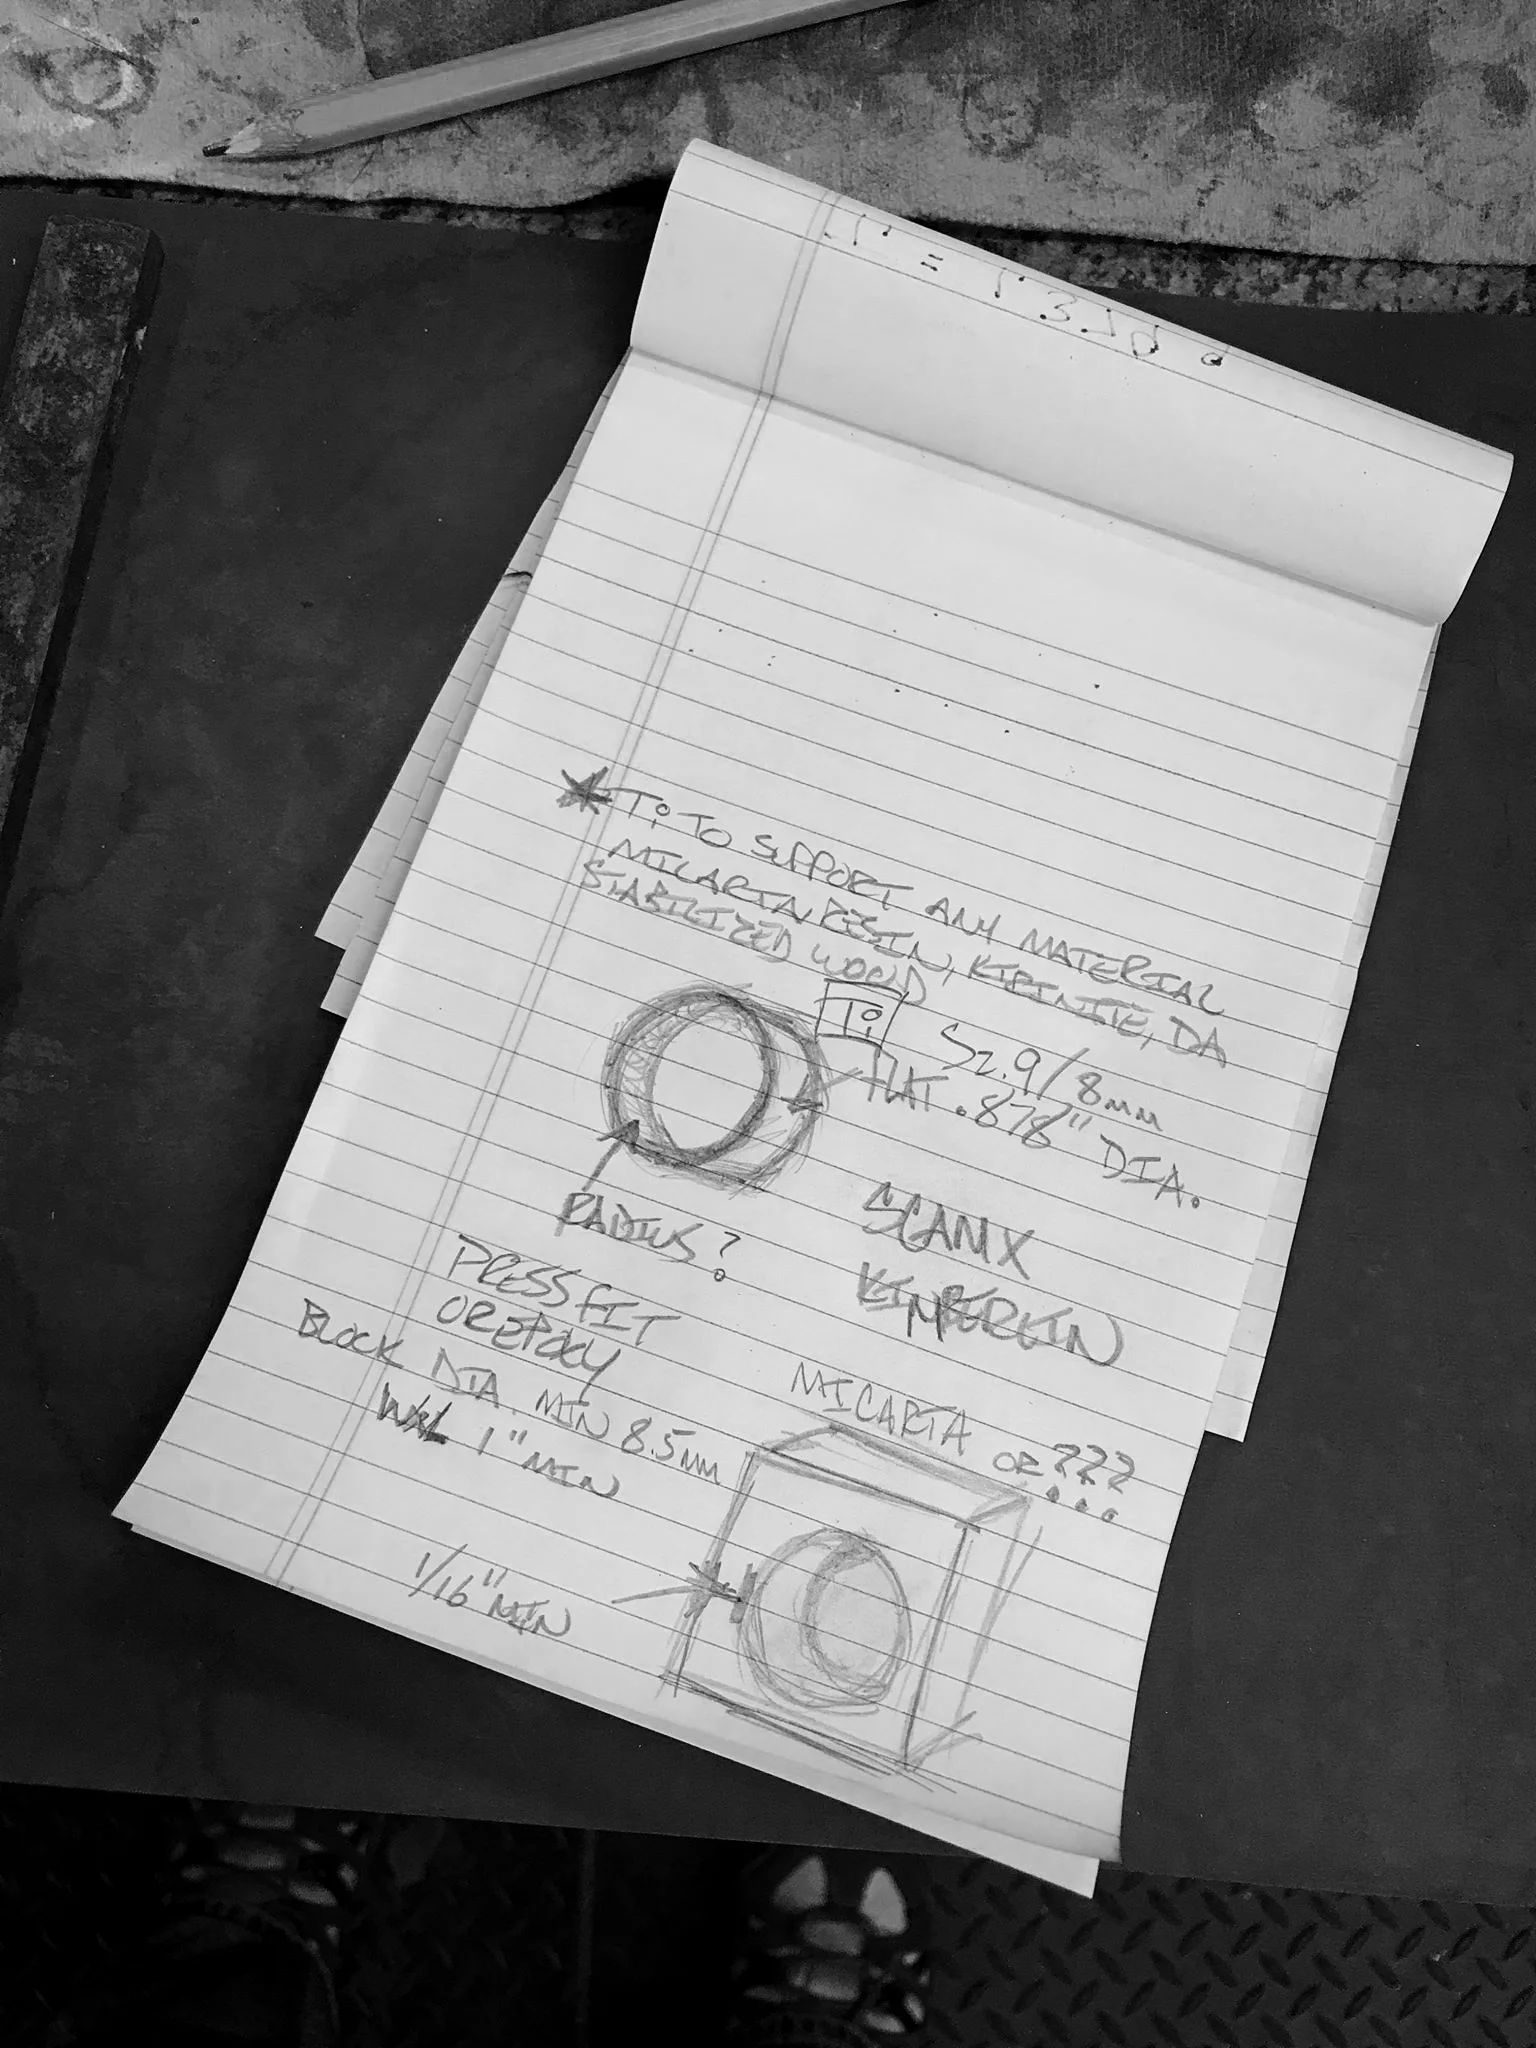 Ti TO SUPPORT ANY MATERIAL
MICARTA, RESIN, KIRINITE, DA
STABILIZED WOOD
Ti
SZ.9/8mm
FLAT .878" DIA.
RADIUS?
SCAMX
KIMBERLIN
PRESS FIT
OR EPOXY
BLOCK DIA. MIN 8.5mm
1" MIN
MICARTA OR ???
1/16" MIN